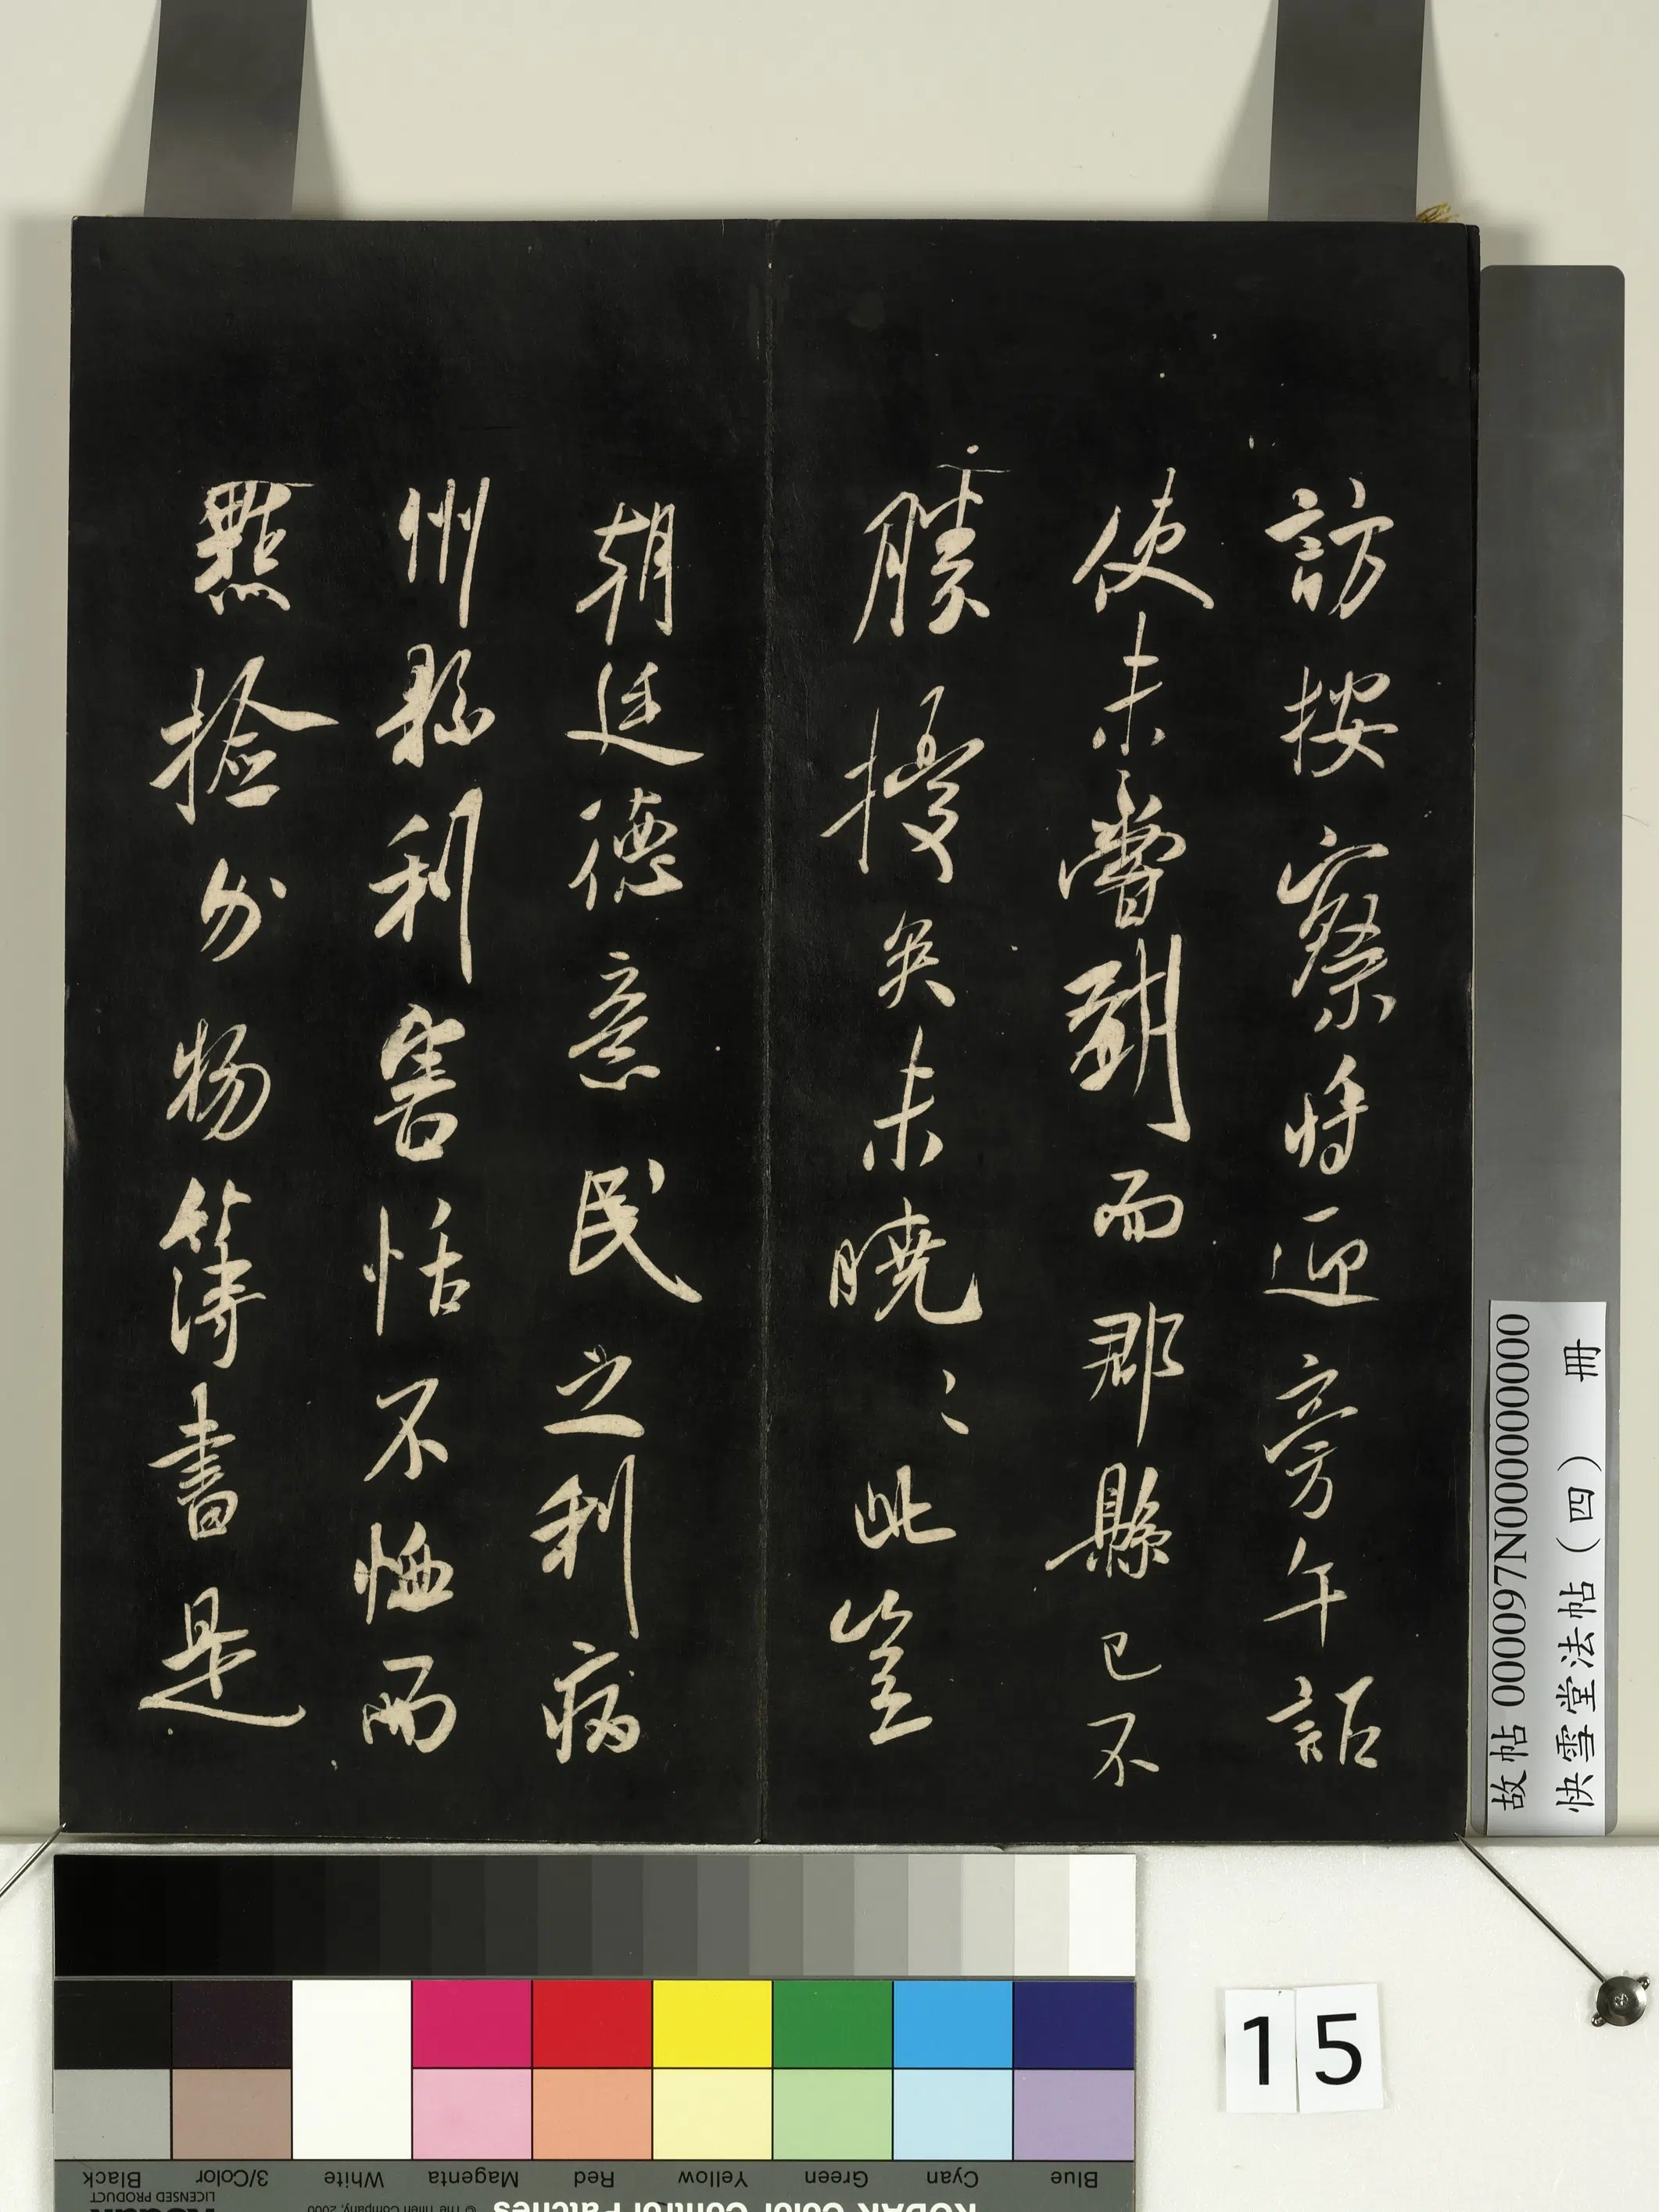 訪按察將迎旁午詎
使未嘗而郡縣已不
勝擾矣未曉〻此豈
朝廷德意民之利病
州縣利害恬不恤而
點撿外物簿書是
故帖 000097N000000000
快雪堂法帖（四） 冊
15
Blue Cyan Green Yellow Red Magenta White 3/Color Black
KODAK Color Control Patches
© The Tiffen Company, 2000
LICENSED PRODUCT